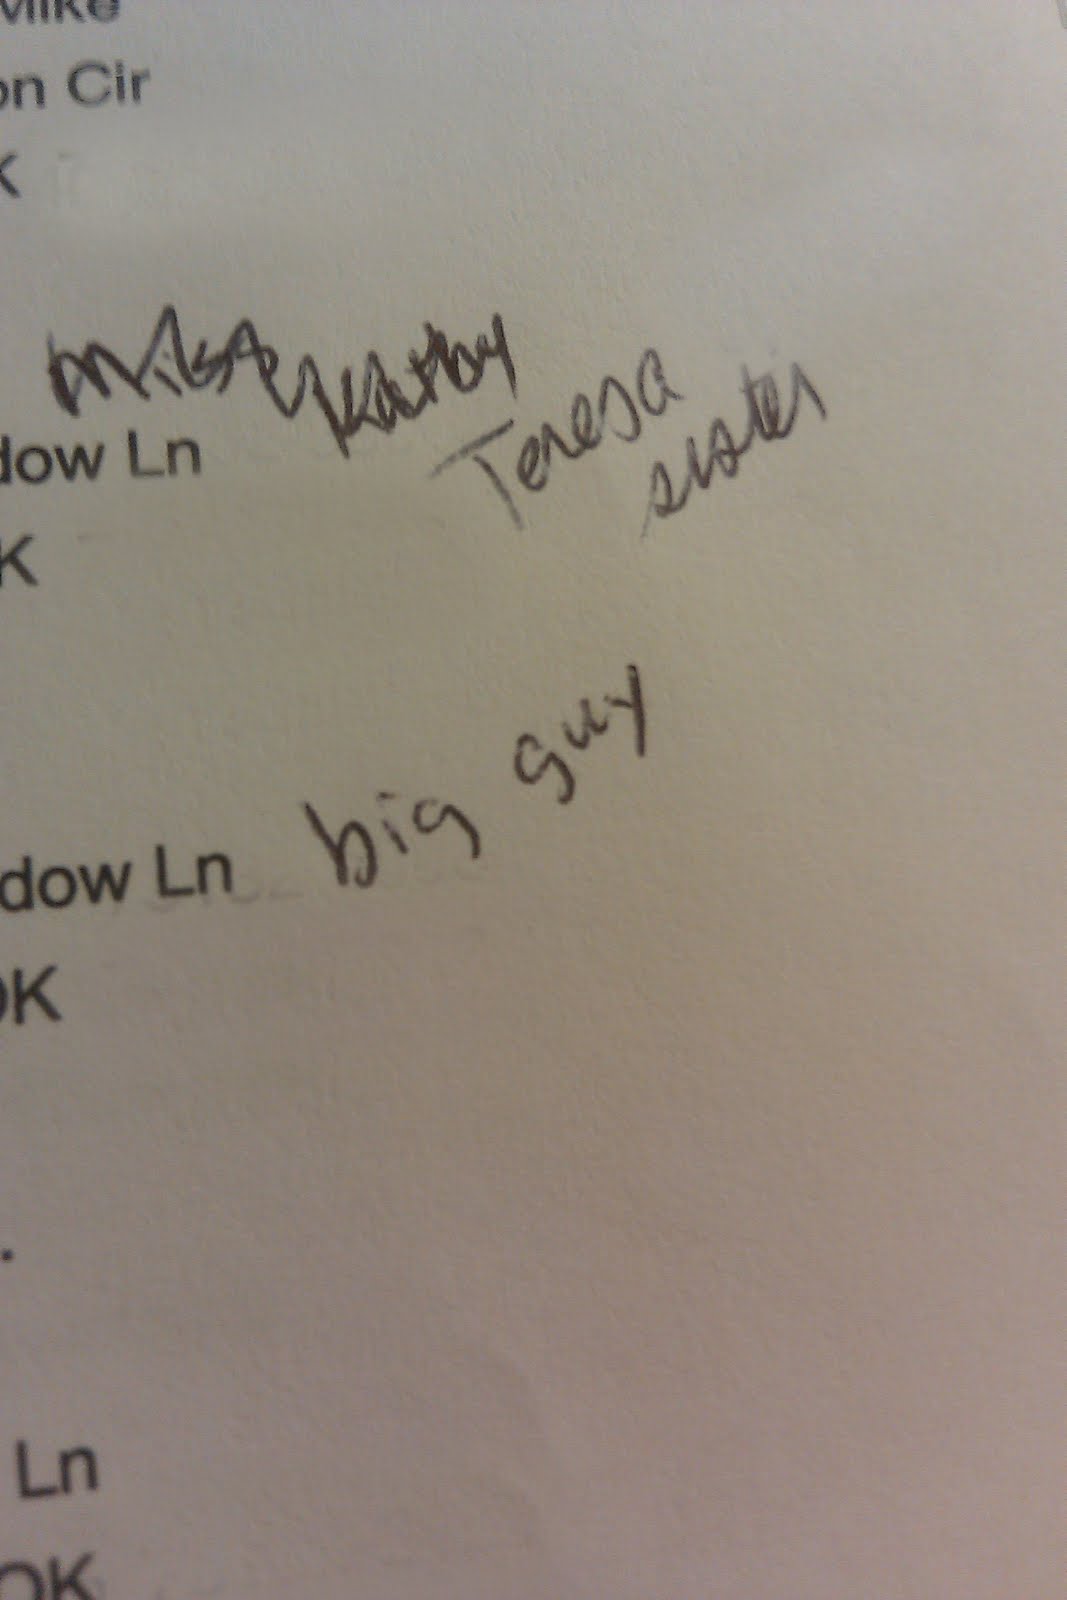 Mike
on Cir
K
Mike, Kathy
Teresa
sister
dow Ln
K
big guy
dow Ln
OK
.
Ln
OK